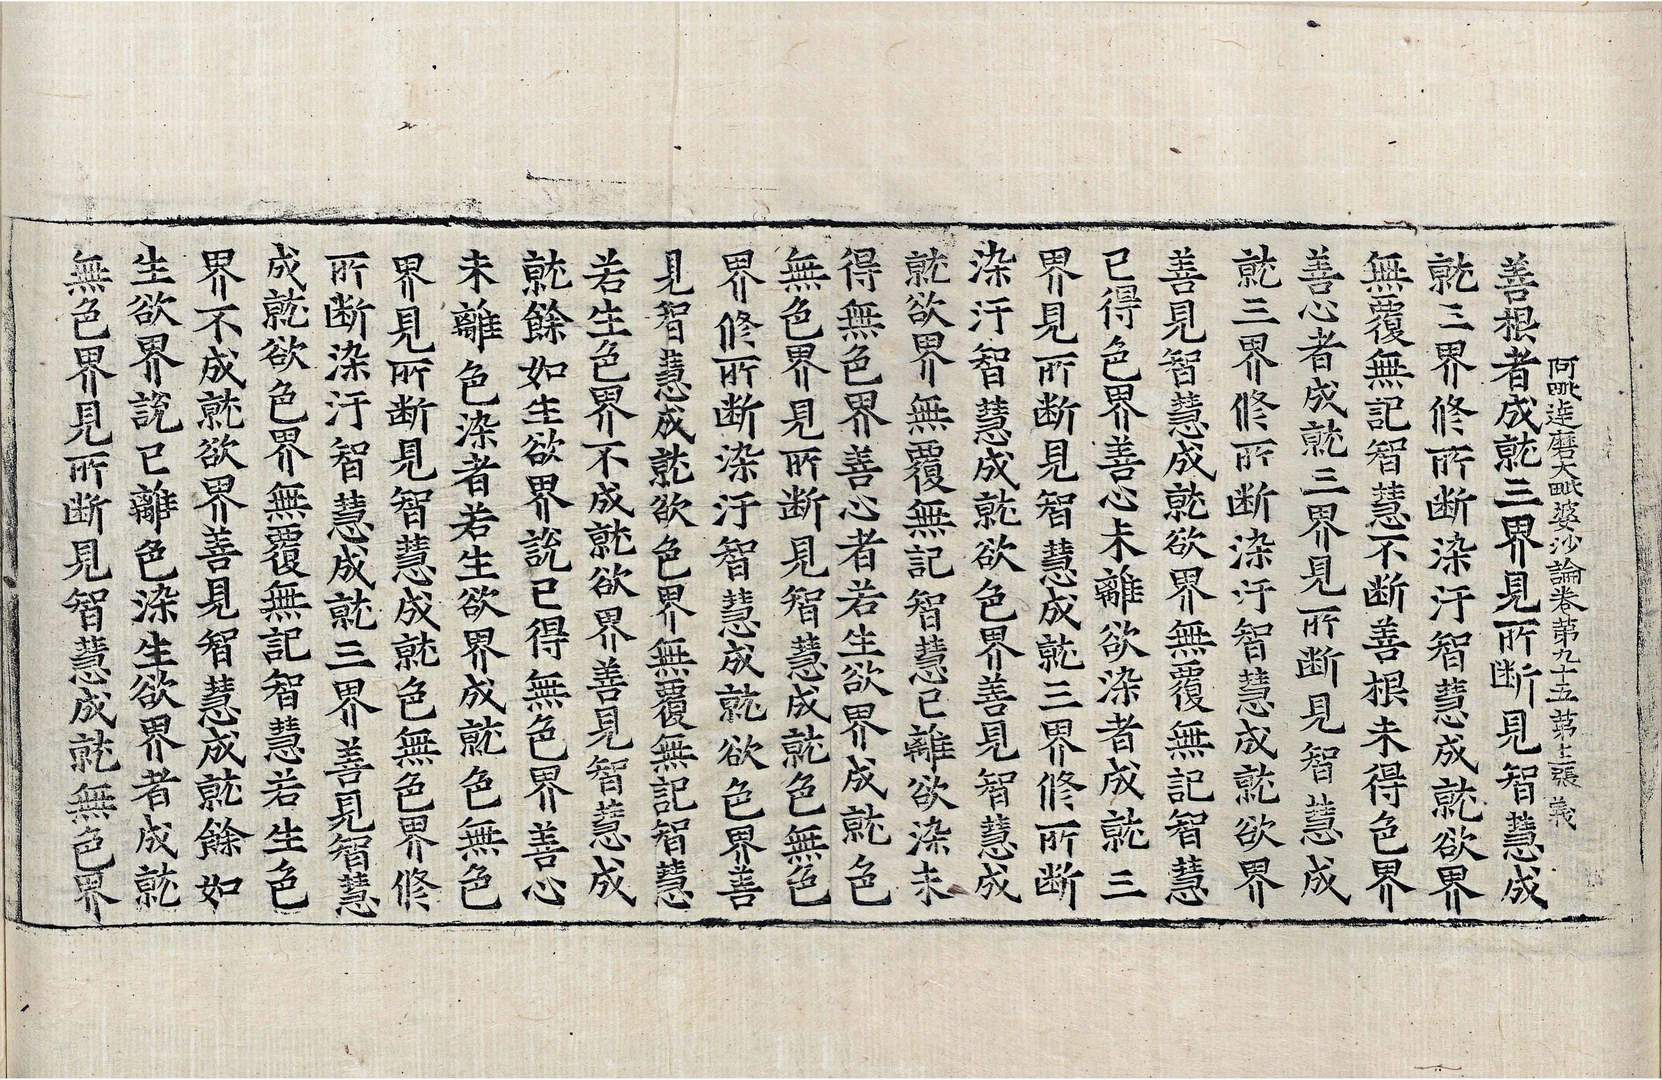 阿毗達磨大毗婆沙論卷第九十五 第十二張 義
善根者成就三界見所断見智慧成
就三界修所断染汙智慧成就欲界
無覆無記智慧不断善根未得色界
善心者成就三界見所断見智慧成
就三界修所断染汙智慧成就欲界
善見智慧成就欲界無覆無記智慧
已得色界善心未離欲染者成就三
界見所断見智慧成就三界修所断
染汙智慧成就欲色界善見智慧成
就欲界無覆無記智慧已離欲染未
得無色界善心者若生欲界成就色
無色界見所断見智慧成就色無色
界修所断染汙智慧成就欲色界善
見智慧成就欲色界無覆無記智慧
若生色界不成就欲界善見智慧成
就餘如生欲界說已得無色界善心
未離色染者若生欲界成就色無色
界見所断見智慧成就色無色界修
所断染汙智慧成就三界善見智慧
成就欲色界無覆無記智慧若生色
界不成就欲界善見智慧成就餘如
生欲界說已離色染生欲界者成就
無色界見所断見智慧成就無色界